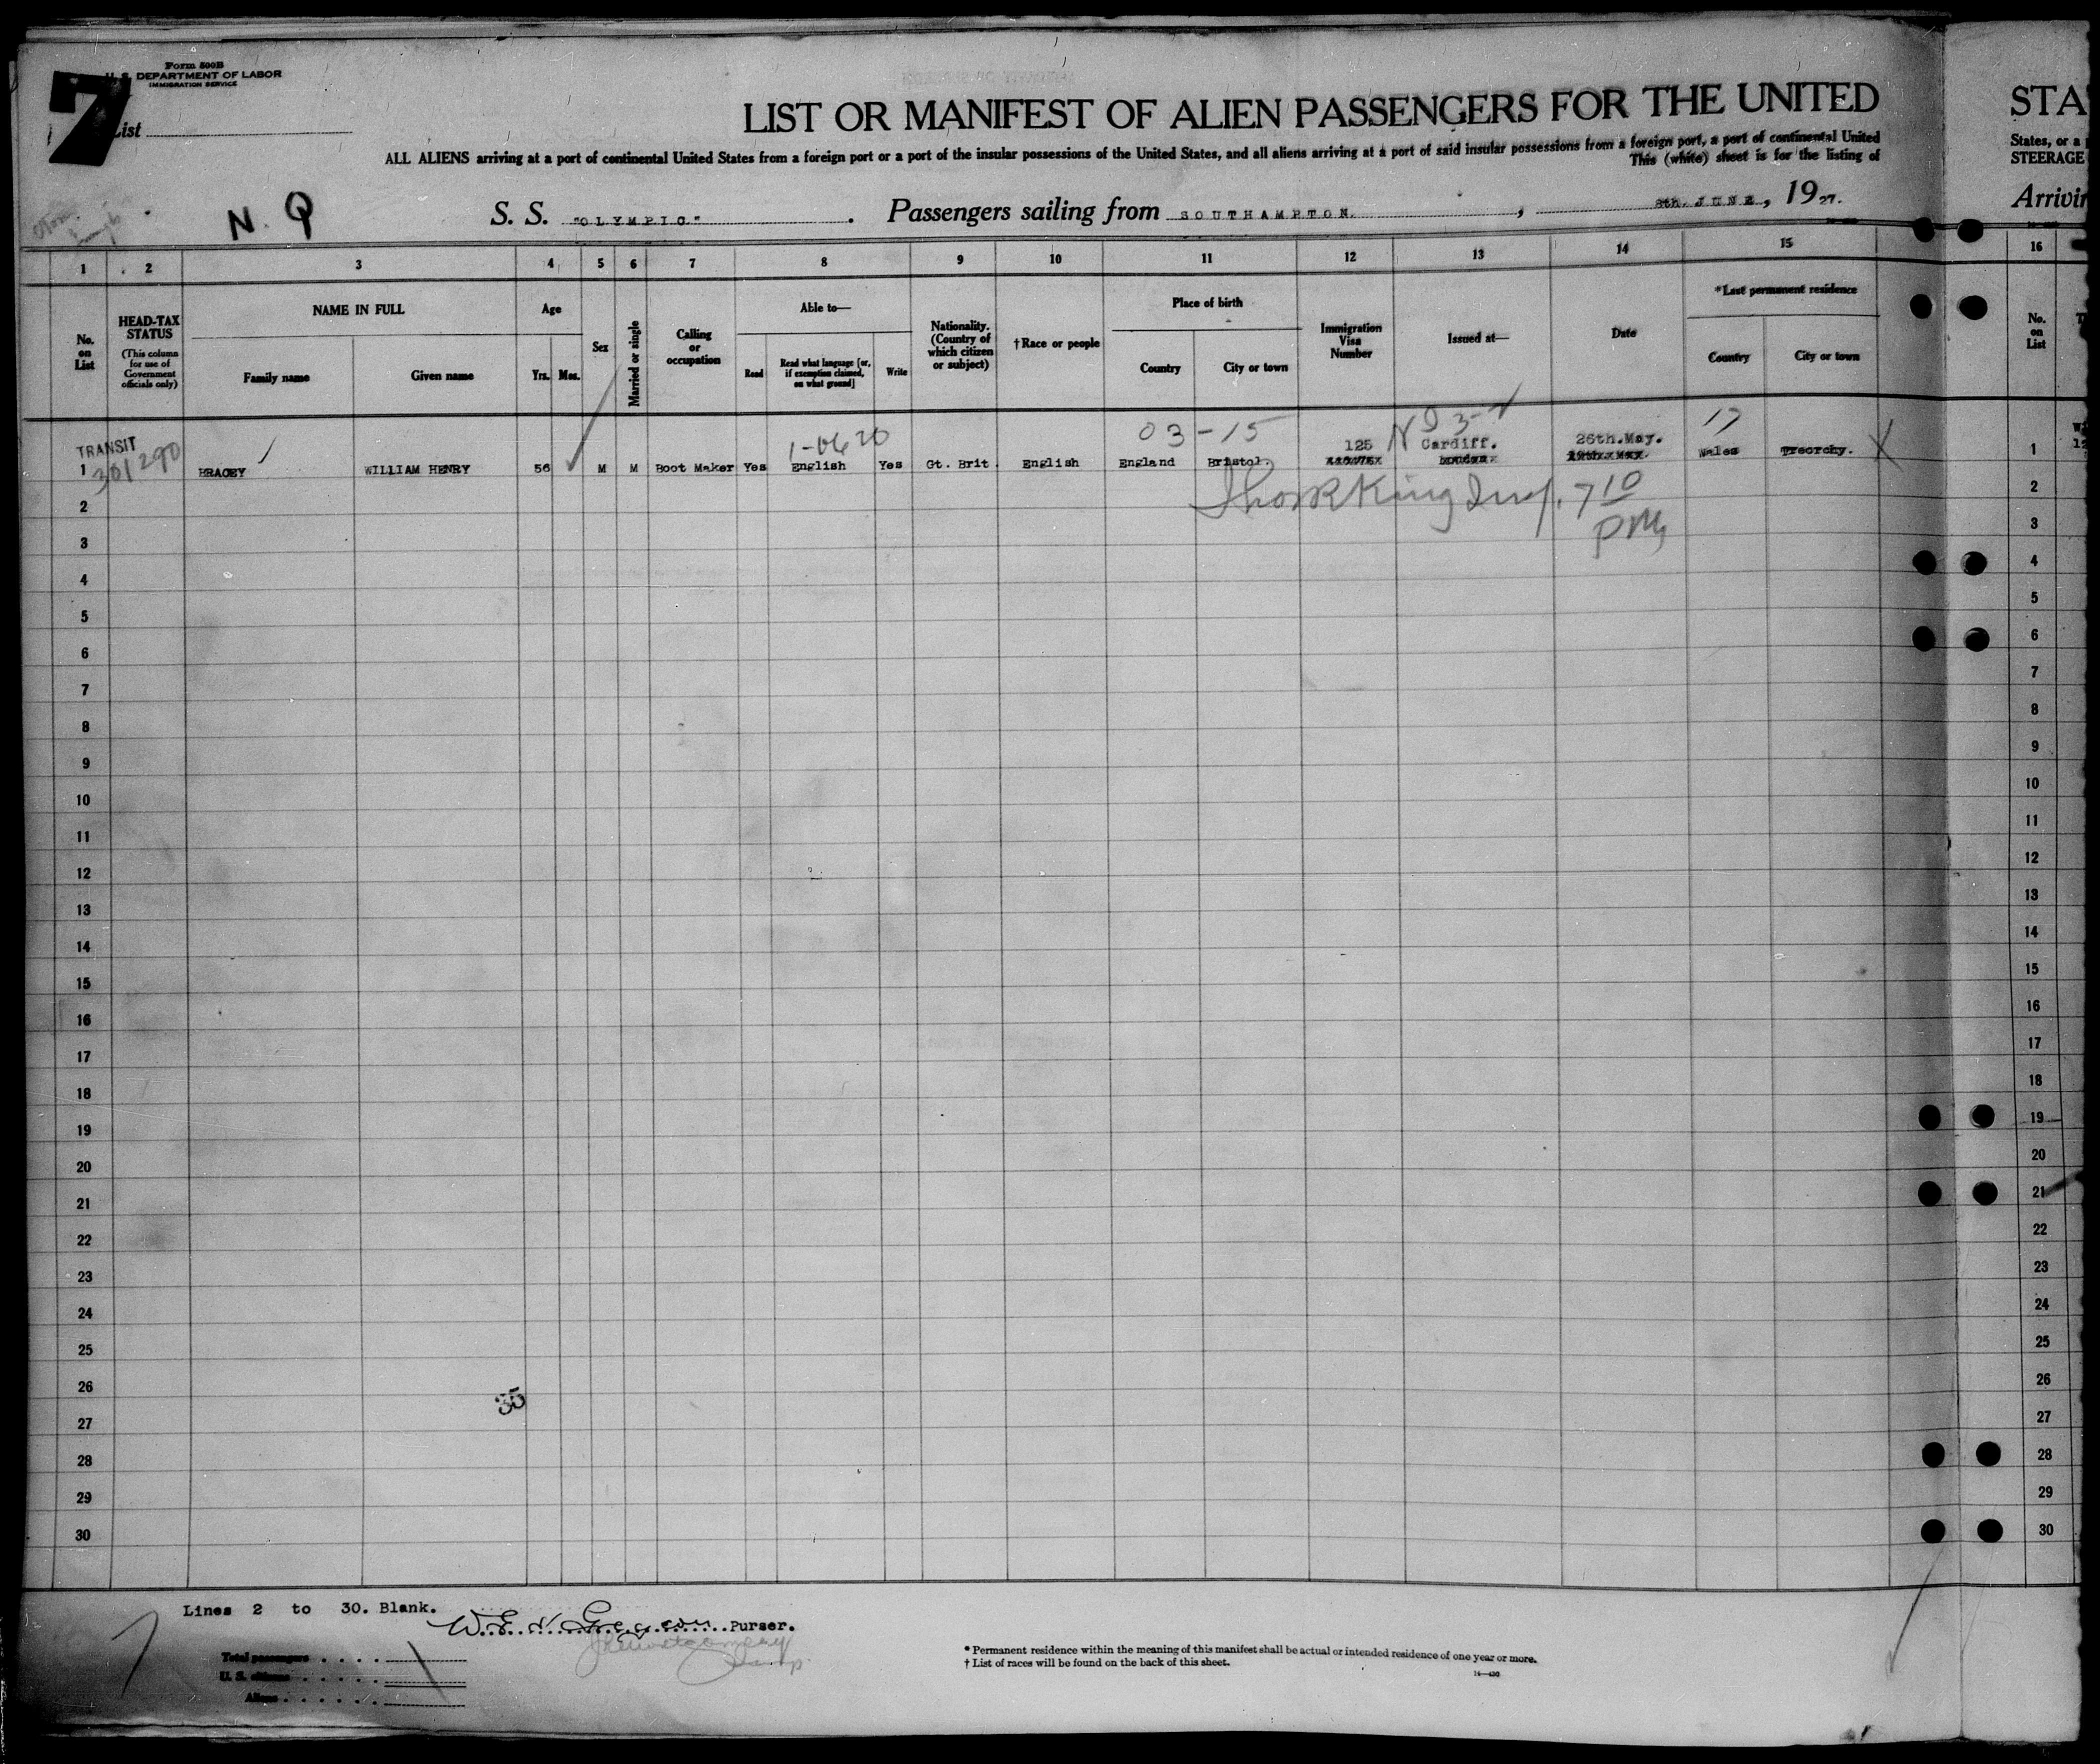 Form 500B
U. S. DEPARTMENT OF LABOR
IMMIGRATION SERVICE
7
List
LIST OR MANIFEST OF ALIEN PASSENGERS FOR THE UNITED
STA
ALL ALIENS arriving at a port of continental United States from a foreign port or a port of the insular possessions of the United States, and all aliens arriving at a port of said insular possessions from a foreign port, a port of continental United
States, or a
This (white) sheet is for the listing of
STEERAGE
N. Q
S. S. "OLYMPIC". Passengers sailing from SOUTHAMPTON, 8th. JUNE, 1927.
Arrivin
1 2 3 4 5 6 7 8 9 10 11 12 13 14 15 16
No. on List
HEAD-TAX STATUS
(This column for use of Government officials only)
NAME IN FULL
Family name
Given name
Age
Yrs. Mos.
Sex
Married or single
Calling or occupation
Able to—
Read
Read what language [or, if exemption claimed, on what ground]
Write
Nationality. (Country of which citizen or subject)
† Race or people
Place of birth
Country
City or town
Immigration Visa Number
Issued at—
Date
*Last permanent residence
Country
City or town
No. on List
TRANSIT
301290
1-0620
03-15
17
125 Cardiff. 26th.May.
1 BRACEY WILLIAM HENRY 56 M M Boot Maker Yes English Yes Gt. Brit. English England Bristol. Wales Treorchy. X 1
7 10
PM
2 2
3 3
4 4
5 5
6 6
7 7
8 8
9 9
10 10
11 11
12 12
13 13
14 14
15 15
16 16
17 17
18 18
19 19
20 20
21 21
22 22
23 23
24 24
25 25
26 26
35
27 27
28 28
29 29
30 30
Lines 2 to 30. Blank.
Purser.
Total passengers
U. S. citizens
Aliens
* Permanent residence within the meaning of this manifest shall be actual or intended residence of one year or more.
† List of races will be found on the back of this sheet.